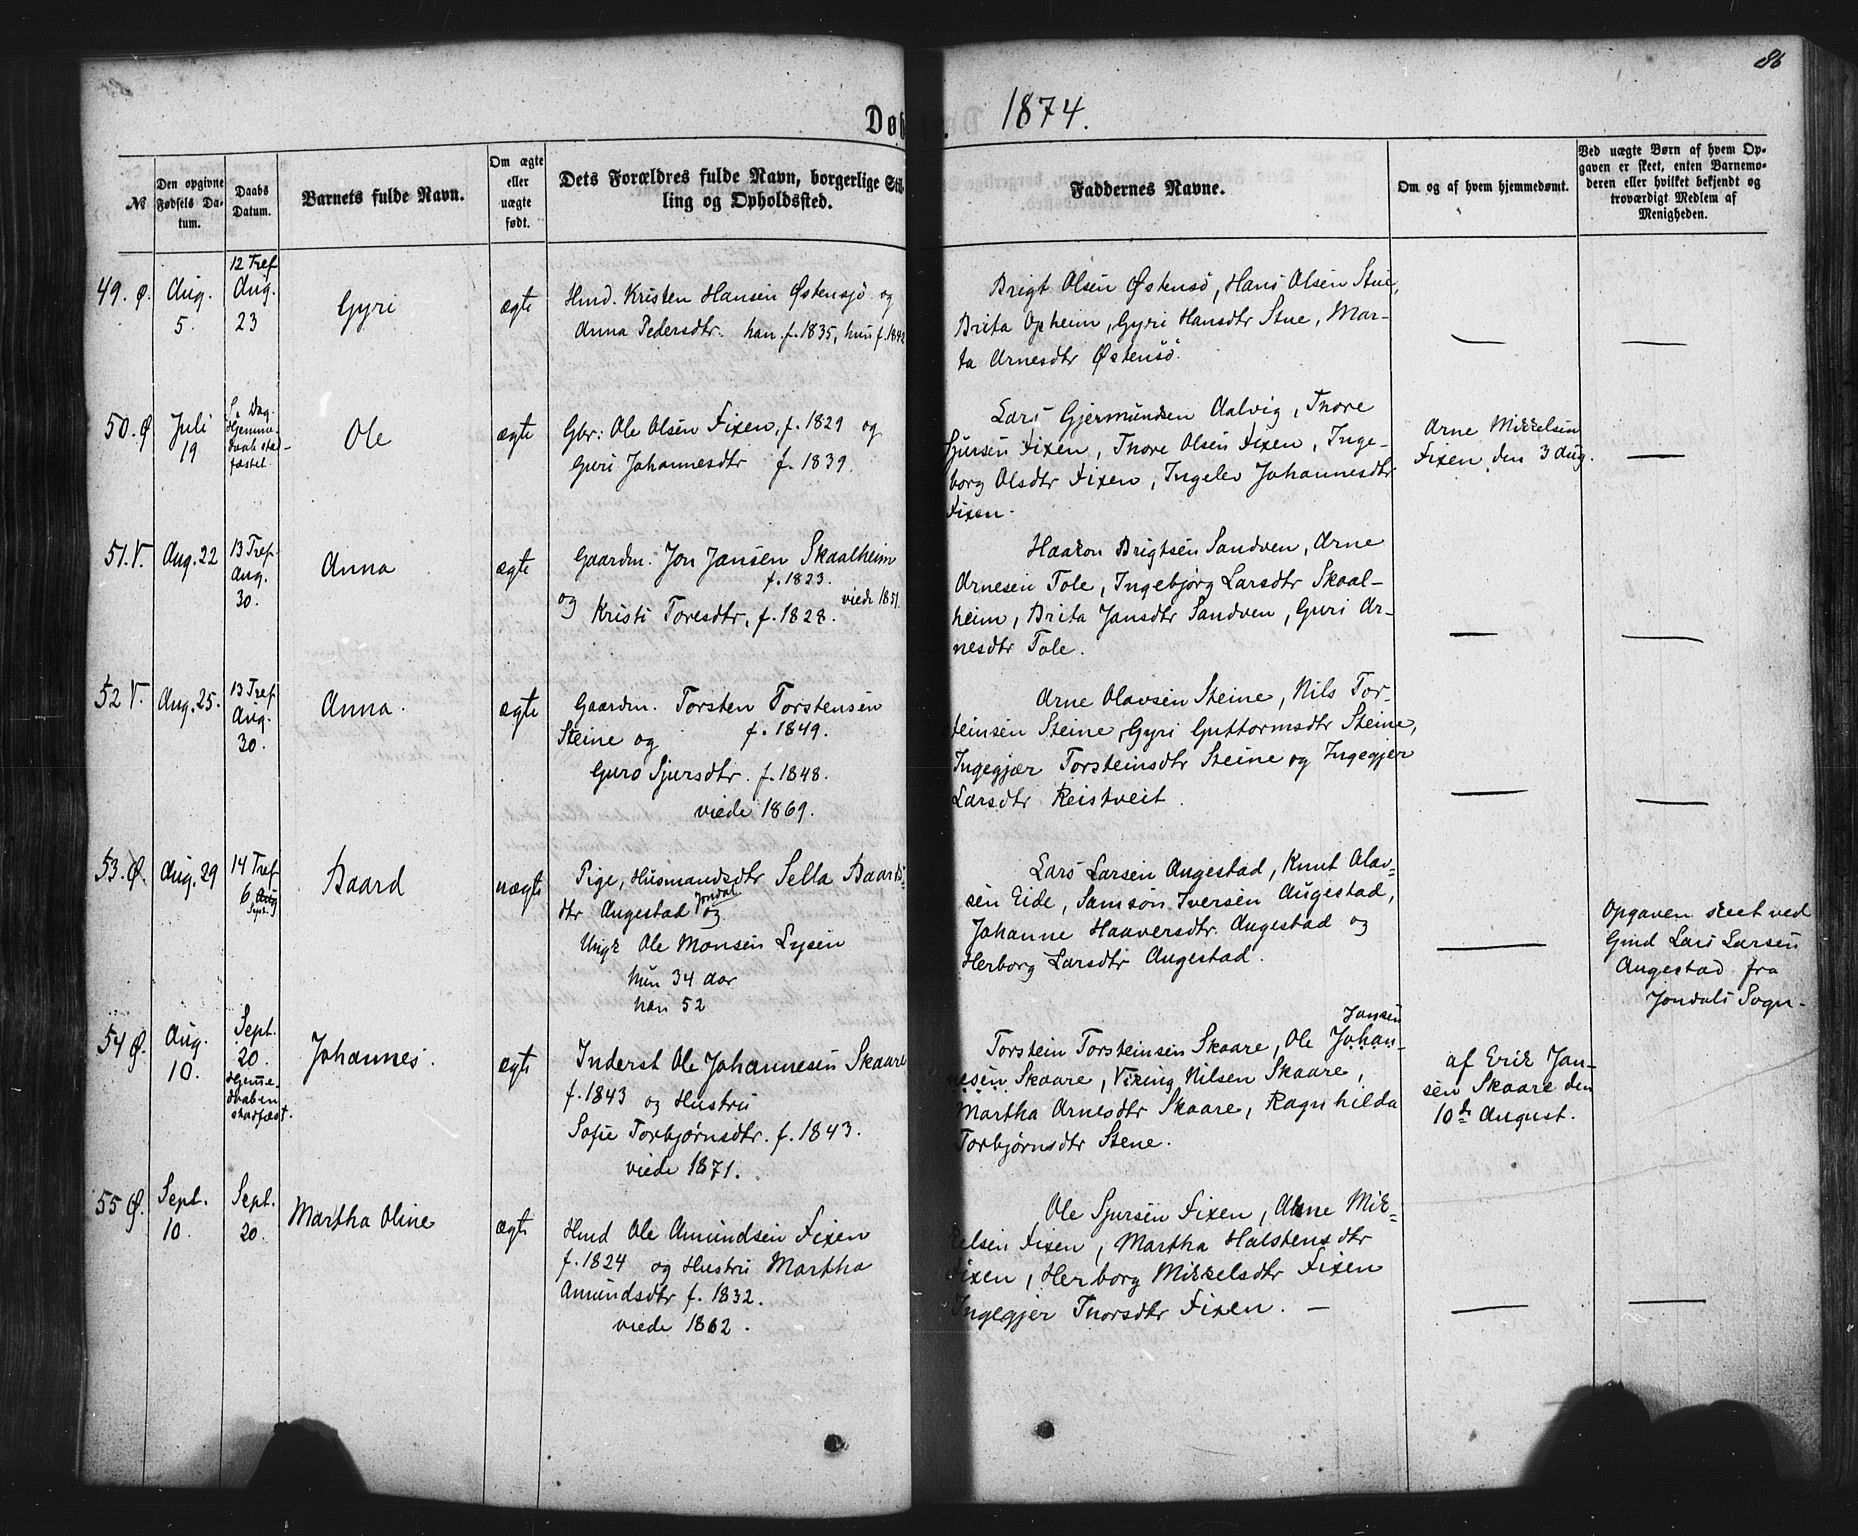 86
Døb 1874.
№
Den opgivne Fødsels Datum.
Daabs Datum.
Barnets fulde Navn.
Om ægte eller uægte født.
Dets Forældres fulde Navn, borgerlige Stilling og Opholdssted.
Faddernes Navne.
Om og af hvem hjemmedømt.
Ved uægte Børn af hvem Opgaven er skeet, enten Barnemoderen eller hvilket bekjendt og troværdigt Medlem af Menigheden.
49. Ø.
Aug.
5.
12 Tref
Aug.
23
Gyri
ægte
Hmd. Kristen Hansen Østensjø og
Anna Pedersdtr. han f. 1835, hun f. 1842
Brigt Olsen Østensø, Hans Olsen Stue,
Brita Opheim, Gyri Hansdtr Stue, Mar-
ta Arnesdtr Østensø.
—
—
50. Ø
Juli
19
S. Dag.
Hjemme-
daab sta-
fæstet.
Ole
ægte
Gbr: Ole Olsen Fixen, f. 1829 og
Guri Johannesdtr f. 1839.
Lars Gjermundsen Aalvig, Thore
Sjursen Fixen, Thore Olsen Fixen, Inge-
borg Olsdtr Fixen, Ingelev Johannesdtr
Fixen.
Arne Mikkelsen
Fixen den 3 Aug.
—
51. V.
Aug. 22
13 Tref.
Aug.
30.
Anna
ægte
Gaardm. Jon Jansen Skaalheim
f. 1823.
og Kristi Toresdtr, f. 1828. viede 1851
Haakon Brigtsen Sandven, Arne
Arnesen Tole, Ingebjørg Larsdtr Skaal-
heim, Brita Jansdtr Sandven, Guri Ar-
nesdtr Tole.
—
—
52 V.
Aug. 25.
13 Tref
Aug.
30.
Anna.
ægte
Gaardm. Torsten Torstensen
Steine og f. 1849.
Guro Sjursdtr. f. 1848.
viede 1869.
Arne Olavsen Steine, Nils Tor-
steinsen Steine, Gyri Guttormsdtr Steine,
Ingegjær Torsteinsdtr Steine og Ingegjer
Larsdtr Reistveit.
—
—
53. Ø.
Aug. 29
14 Tref
6 Aug
Sept.
Baard
uægte
Pige, Husmandsdtr Sella Baards-
dtr Augestad Jondal og
Ungk Ole Monsen Lysen
hun 34 aar
han 52
Lars Larsen Augestad, Knut Olav-
sen Eide, Samson Iversen Augestad,
Johanne Haaversdtr. Augestad og
Herborg Larsdtr Augestad.
—
Opgaven skeet ved
Gmd Lars Larsen
Augestad fra
Jondals Sogn.
54 Ø.
Aug.
10.
Sept.
20.
Hjemme-
daaben
stadfæst.
Johannes.
ægte
Inderst Ole Johannesen Skaare
f. 1843 og Hustru
Sofie Torbjørnsdtr. f. 1843.
viede 1871.
Jansen
Torstein Torsteinsen Skaare, Ole Johan-
nesen Skaare, Viking Nilsen Skaare,
Martha Arnesdtr Skaare, Ragnhilda
Torbjørnsdtr Stene.
af Erik Jan-
sen Skaare den
10de August.
55 Ø.
Sept.
10.
Sept.
20.
Martha Oline
ægte
Hmd Ole Amundsen Fixen
f. 1824 og Hustru Martha
Amundsdtr f. 1832.
viede 1862.
Ole Sjursen Fixen, Arne Mik-
kelsen Fixen, Martha Halstensdtr
Fixen, Herborg Mikkelsdtr Fixen
Ingegjer Thorsdtr Fixen. —
—
—